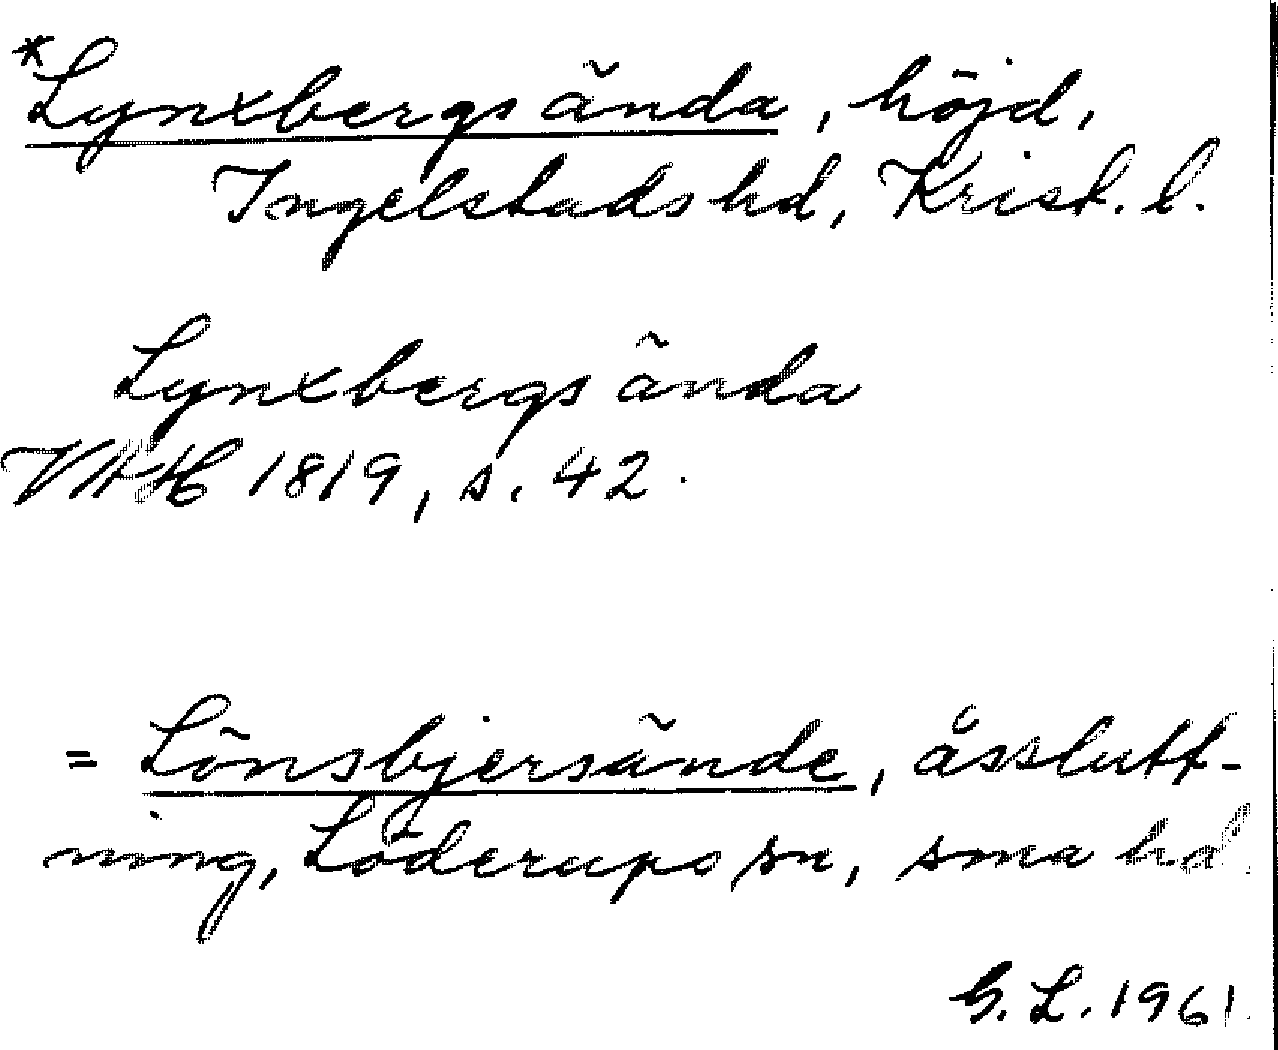 *Lynxbergsända, höjd,
Ingelstads hd, Krist. l.
Lynxbergs ända
VAH 1819, s. 42.
= Lönsbjersände, åsslutt-
ning, Löderups sn, sma hd.
G. L. 1961